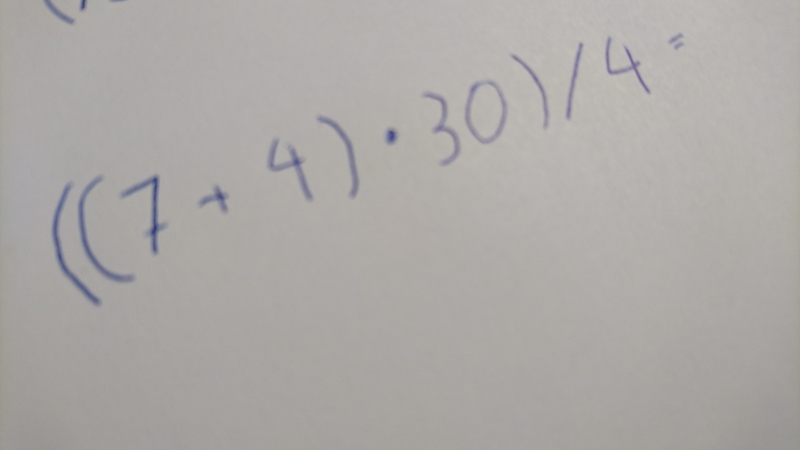 ((7 + 4) · 30) / 4 =